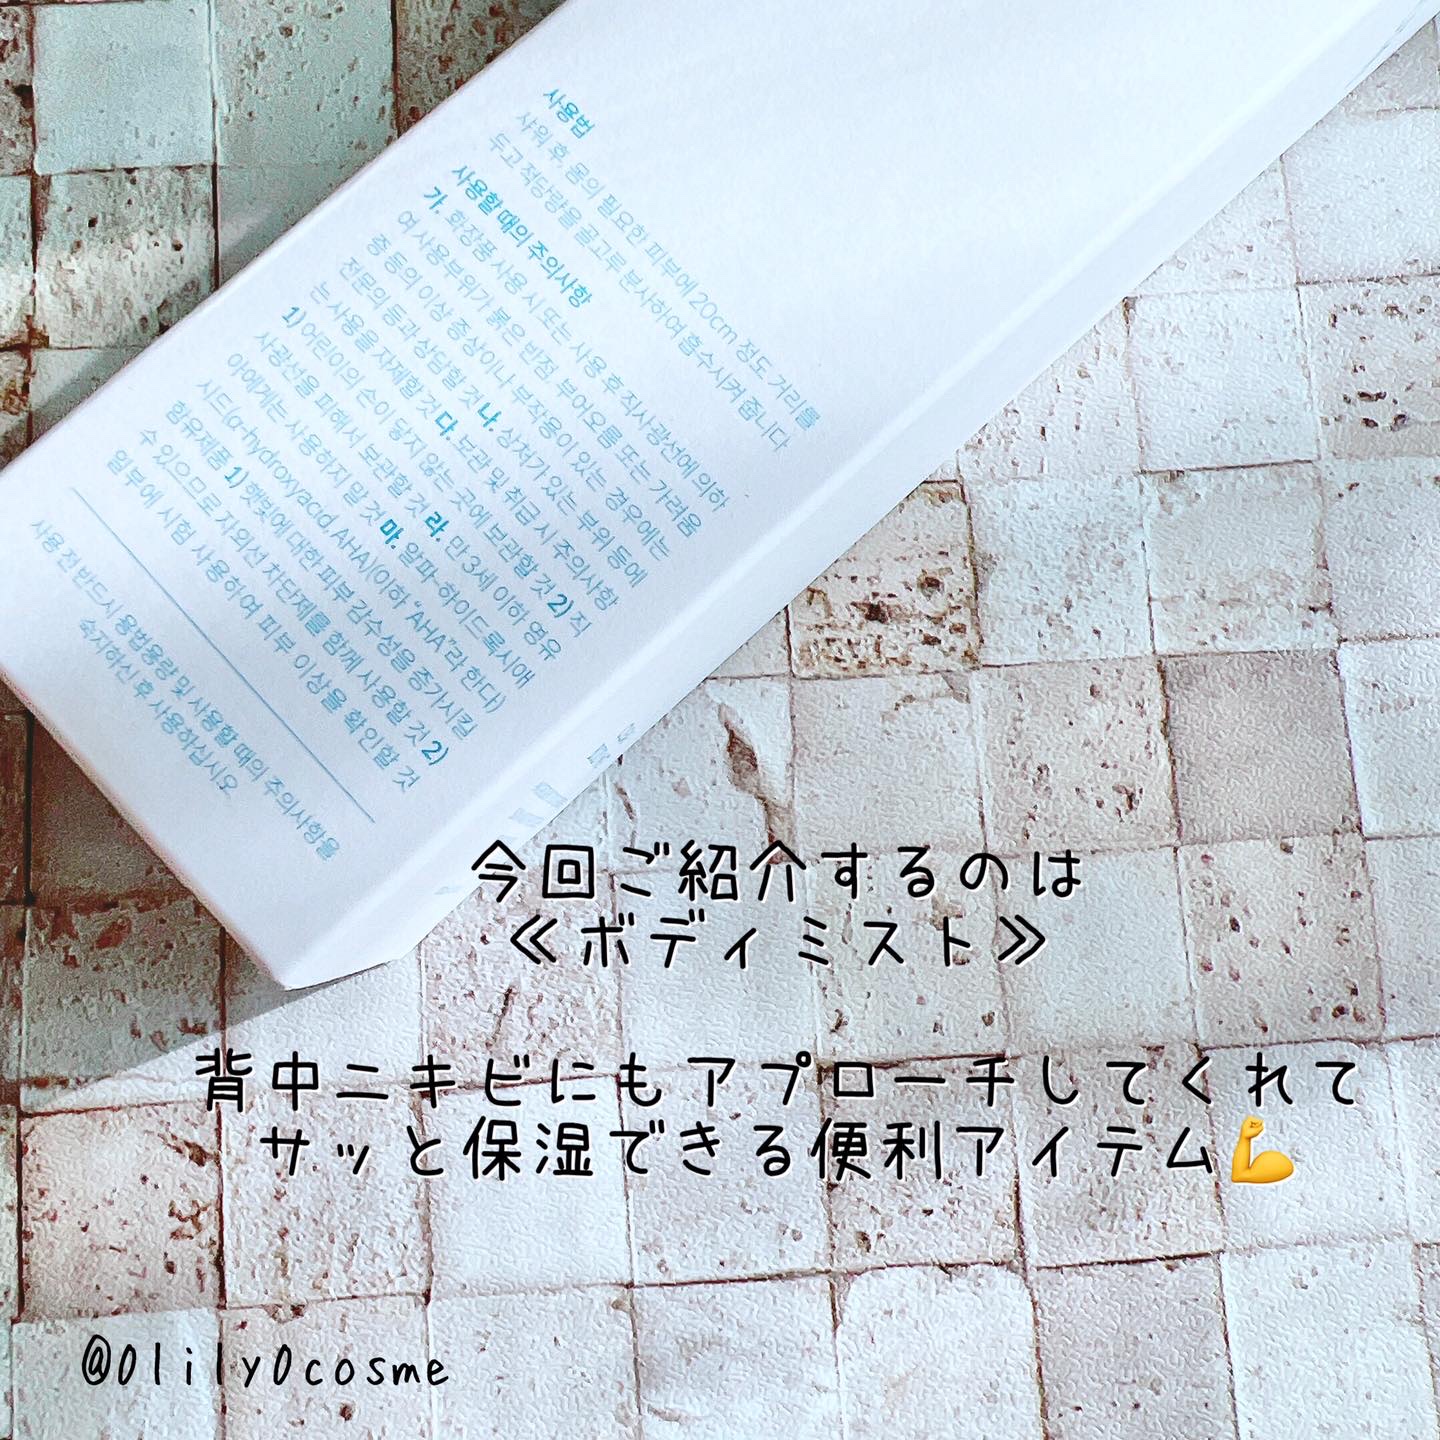 사용법
샤워 후, 몸의 필요한 피부에 20cm 정도 거리를
두고 적당량을 골고루 분사하여 흡수시켜 줍니다.
사용할 때의 주의사항
가. 화장품 사용 시 또는 사용 후 직사광선에 의하
여 사용부위가 붉은 반점, 부어오름 또는 가려움
증 등의 이상 증상이나 부작용이 있는 경우에는
전문의 등과 상담할 것 나. 상처가 있는 부위 등에
는 사용을 자제할 것 다. 보관 및 취급 시 주의사항
1) 어린이의 손이 닿지 않는 곳에 보관할 것 2) 직
사광선을 피해서 보관할 것 라. 만 3세 이하 영유
아에게는 사용하지 말 것 마. 알파-하이드록시애
시드(α-hydroxyacid, AHA)(이하 "AHA"라 한다)
함유제품 1) 햇빛에 대한 피부 감수성을 증가시킬
수 있으므로 자외선 차단제를 함께 사용할 것 2)
일부에 시험 사용하여 피부 이상을 확인할 것
사용 전 반드시 용법용량 및 사용할 때의 주의사항을
숙지하신 후 사용하십시오.
今回ご紹介するのは
≪ボディミスト≫
背中ニキビにもアプローチしてくれて
サッと保湿できる便利アイテム💪
@0lily0cosme